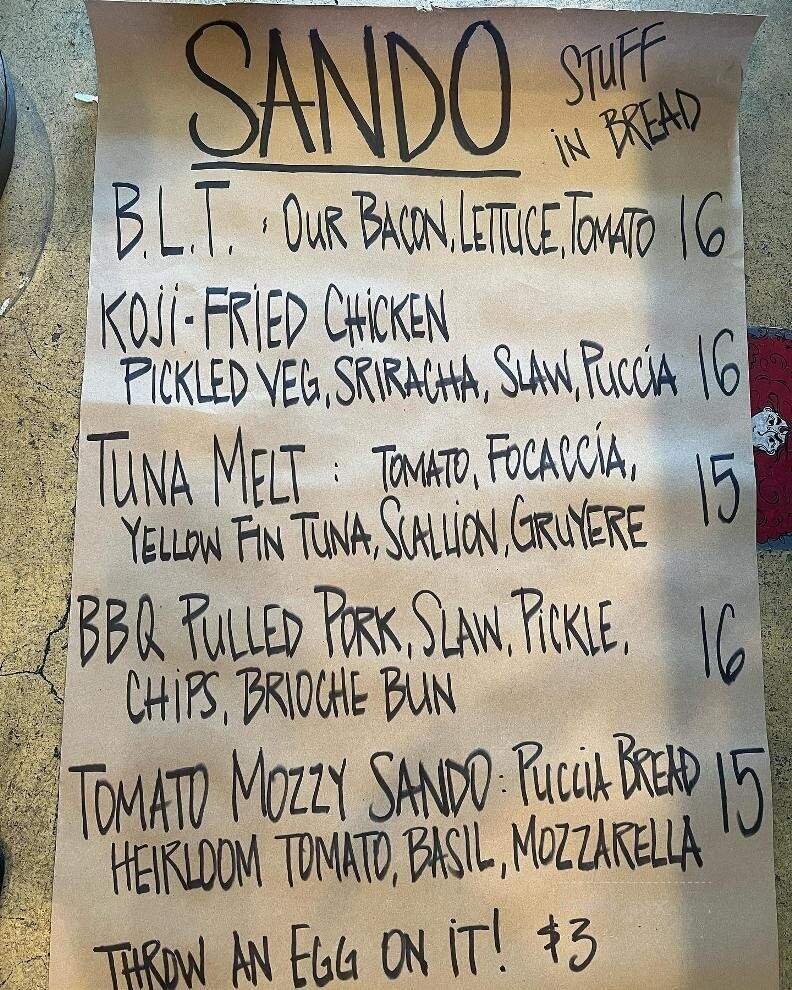 SANDO STUFF IN BREAD
B.L.T. : OUR BACON, LETTUCE, TOMATO 16
KOJI-FRIED CHICKEN
PICKLED VEG, SRIRACHA, SLAW, PUCCIA 16
TUNA MELT : TOMATO, FOCACCIA,
YELLOW FIN TUNA, SCALLION, GRUYERE 15
BBQ PULLED PORK, SLAW, PICKLE,
CHIPS, BRIOCHE BUN 16
TOMATO MOZZY SANDO: PUCCIA BREAD 15
HEIRLOOM TOMATO, BASIL, MOZZARELLA
THROW AN EGG ON IT! $3